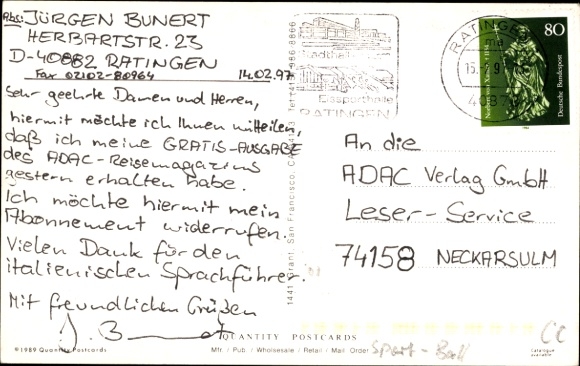 Abs: JÜRGEN BUNERT
HERBARTSTR. 23
D-40882 RATINGEN
Fax 02102-80964 14.02.97
Sehr geehrte Damen und Herren,
hiermit möchte ich Ihnen mitteilen,
daß ich meine GRATIS-AUSGABE
des ADAC-Reisemagazins
gestern erhalten habe.
Ich möchte hiermit mein
Abonnement widerrufen.
Vielen Dank für den
italienischen Sprachführer.
Mit freundlichen Grüßen
Stadthalle
Eissporthalle
RATINGEN
RATINGEN
80
Deutsche Bundespost
An die
ADAC Verlag GmbH
Leser-Service
74158 NECKARSULM
1441 Grant, San Francisco, CA
QUANTITY POSTCARDS
Mfr. / Pub. / Wholesale / Retail / Mail Order
©1989 Quantity Postcards
Catalogue
available
Sport - Ball